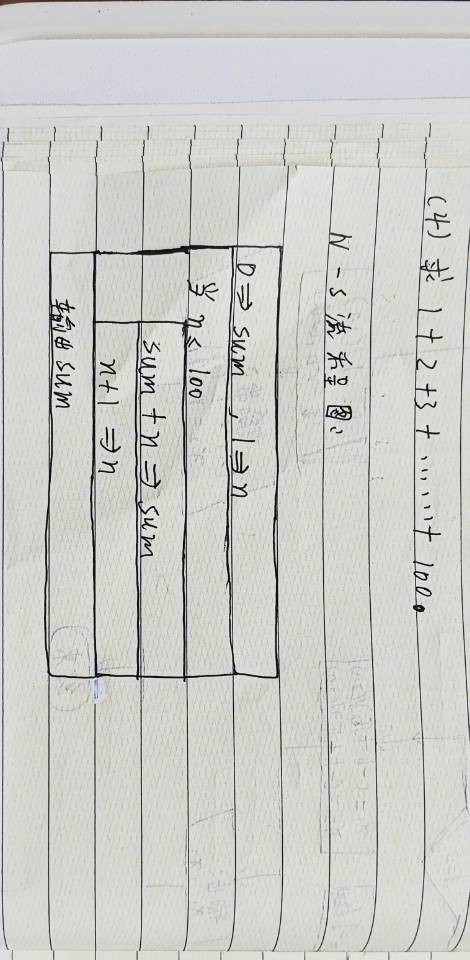 (4) 求 1+2+3+……+ 100。
N-S 流程图:
0⇒ sum , 1⇒n
当 n≤ 100
sum +n ⇒ sum
n+1 ⇒n
输出 sum